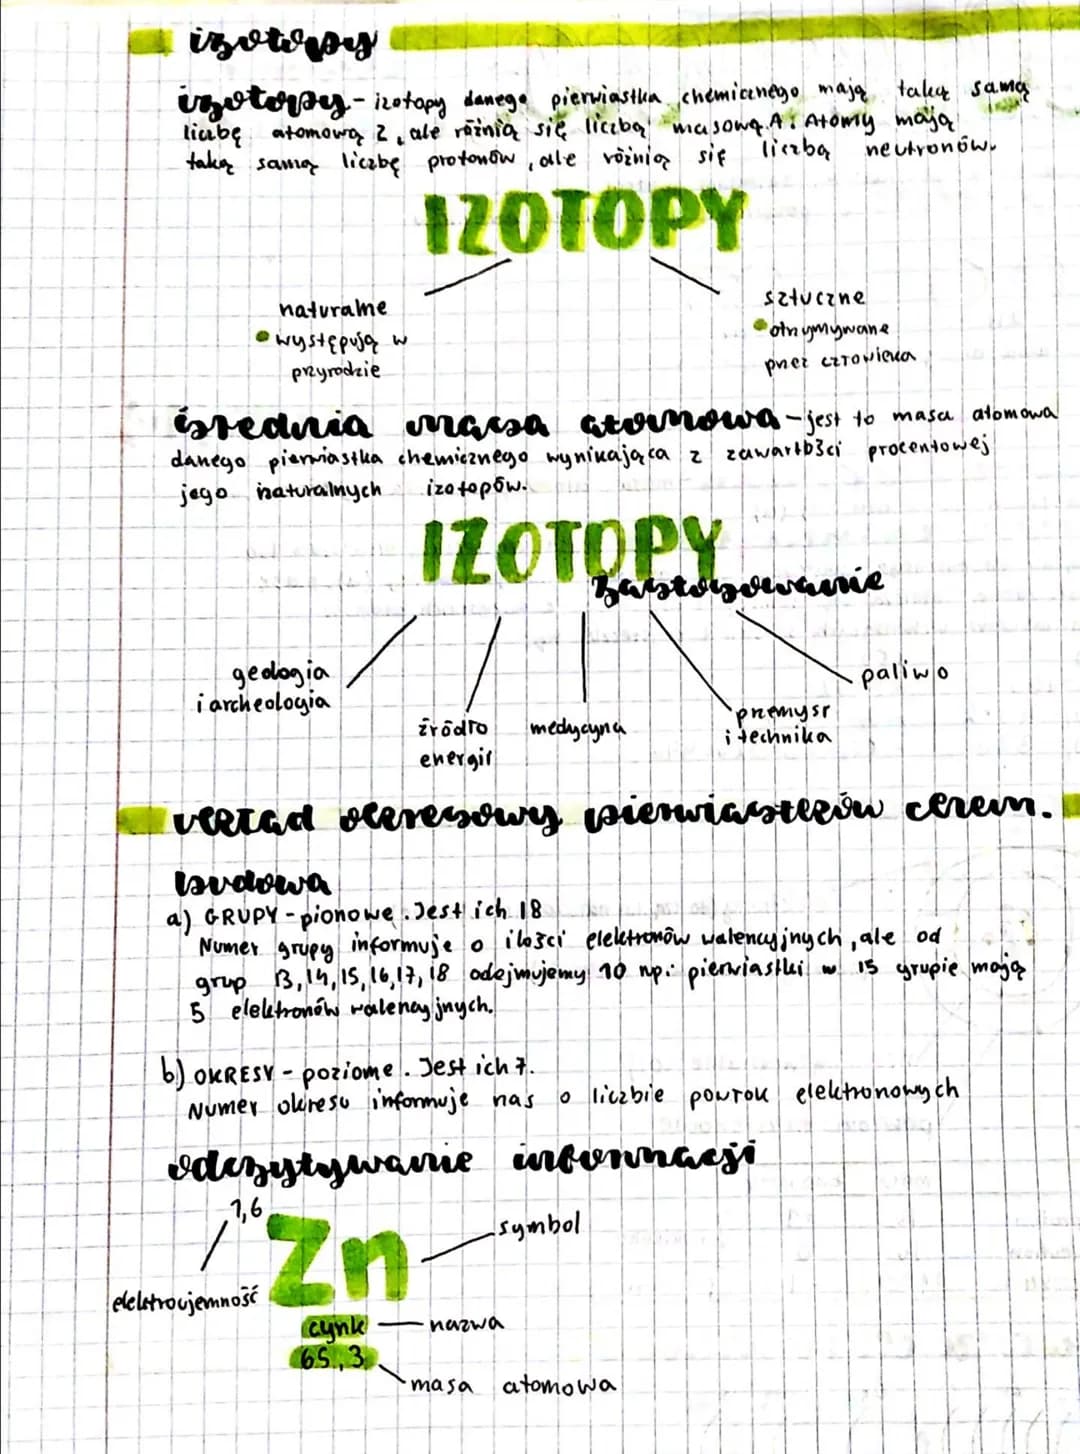 izotopy
izotopy - izotopy danego pierwiastka chemicznego mają taką samą
liczbę atomową Z, ale różnią się liczbą masową A. Atomy mają
taką samą liczbę protonów, ale różnią się liczbą neutronów.
IZOTOPY
naturalne
• występują w
przyrodzie
sztuczne
• otrzymywane
przez człowieka
średnia masa atomowa - jest to masa atomowa
danego pierwiastka chemicznego wynikająca z zawartości procentowej
jego naturalnych izotopów.
IZOTOPY
zastosowanie
geologia
i archeologia
źródło
energii
medycyna
przemysł
i technika
paliwo
układ okresowy pierwiastków chem.
budowa
a) GRUPY - pionowe. Jest ich 18
Numer grupy informuje o ilości elektronów walencyjnych, ale od
grup 13,14,15,16,17,18 odejmujemy 10 np: pierwiastki w 15 grupie mają
5 elektronów walencyjnych.
b) OKRESY - poziome. Jest ich 7.
Numer okresu informuje nas o liczbie powłok elektronowych
odczytywanie informacji
1,6
Zn
symbol
elektroujemność
cynk
nazwa
65,3
masa atomowa